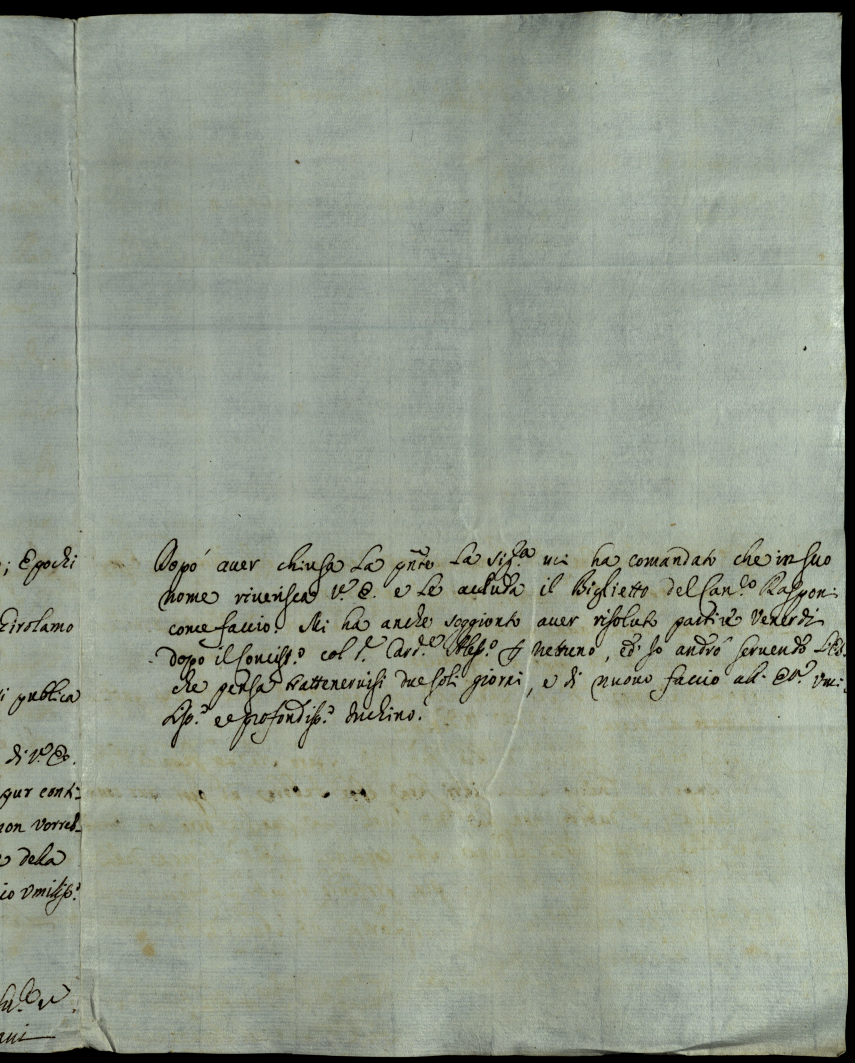 ; E pochi
Girolamo
i publica
di V.ª E.
gur conti:
non vorreb=
e della
io Vmiliss.º
Dopò auer chiusa La pñte La Sig.ª mi ha comandato che in suo
nome riuerisca V.ª E. e Le accluda il Biglietto del Can.co Rasponi
come faccio. Mi ha anche soggionto auer risoluto partire Venerdi
dopo il Concist.º col S.r Card.le Aless.º p Nettuno, ed io andrò seruendo
che pensa trattenervisi due soli giorni, e di nuovo faccio all' E.V. Vmi:
liss.º e profondiss.º Inchino.